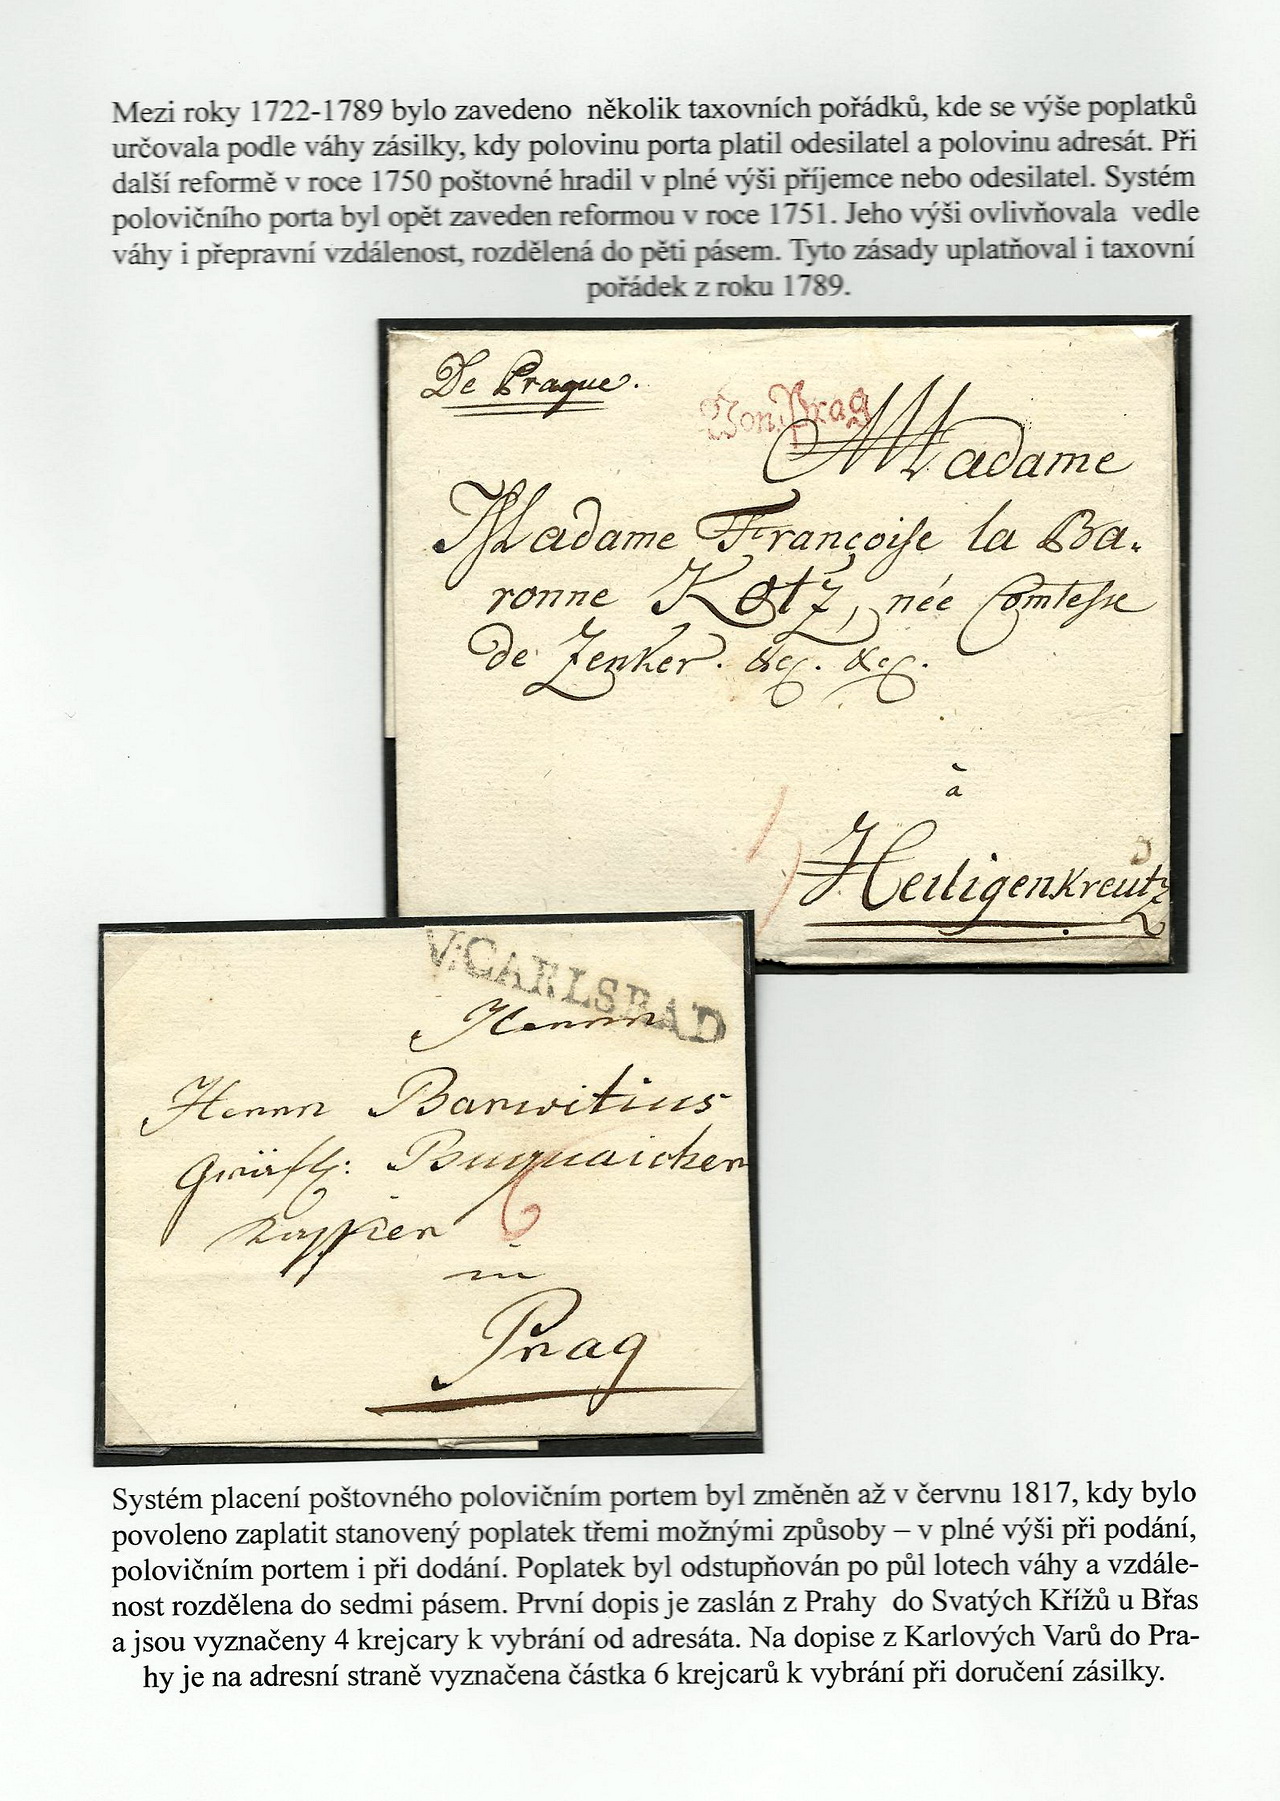 Mezi roky 1722-1789 bylo zavedeno několik taxovních pořádků, kde se výše poplatků
určovala podle váhy zásilky, kdy polovinu porta platil odesilatel a polovinu adresát. Při
další reformě v roce 1750 poštovné hradil v plné výši příjemce nebo odesilatel. Systém
polovičního porta byl opět zaveden reformou v roce 1751. Jeho výši ovlivňovala vedle
váhy i přepravní vzdálenost, rozdělená do pěti pásem. Tyto zásady uplatňoval i taxovní
pořádek z roku 1789.
De Prague.
Von Prag
Madame
Madame Françoise la Ba-
ronne Kotz, née Comtesse
de Zenker. &c. &c.
à
Heiligenkreutz
V:CARLSBAD
Herrn
Herrn Barwitius
Gräfl: Buquaischen
6
in
Prag
Systém placení poštovného polovičním portem byl změněn až v červnu 1817, kdy bylo
povoleno zaplatit stanovený poplatek třemi možnými způsoby – v plné výši při podání,
polovičním portem i při dodání. Poplatek byl odstupňován po půl lotech váhy a vzdále-
nost rozdělena do sedmi pásem. První dopis je zaslán z Prahy do Svatých Křížů u Břas
a jsou vyznačeny 4 krejcary k vybrání od adresáta. Na dopise z Karlových Varů do Pra-
hy je na adresní straně vyznačena částka 6 krejcarů k vybrání při doručení zásilky.